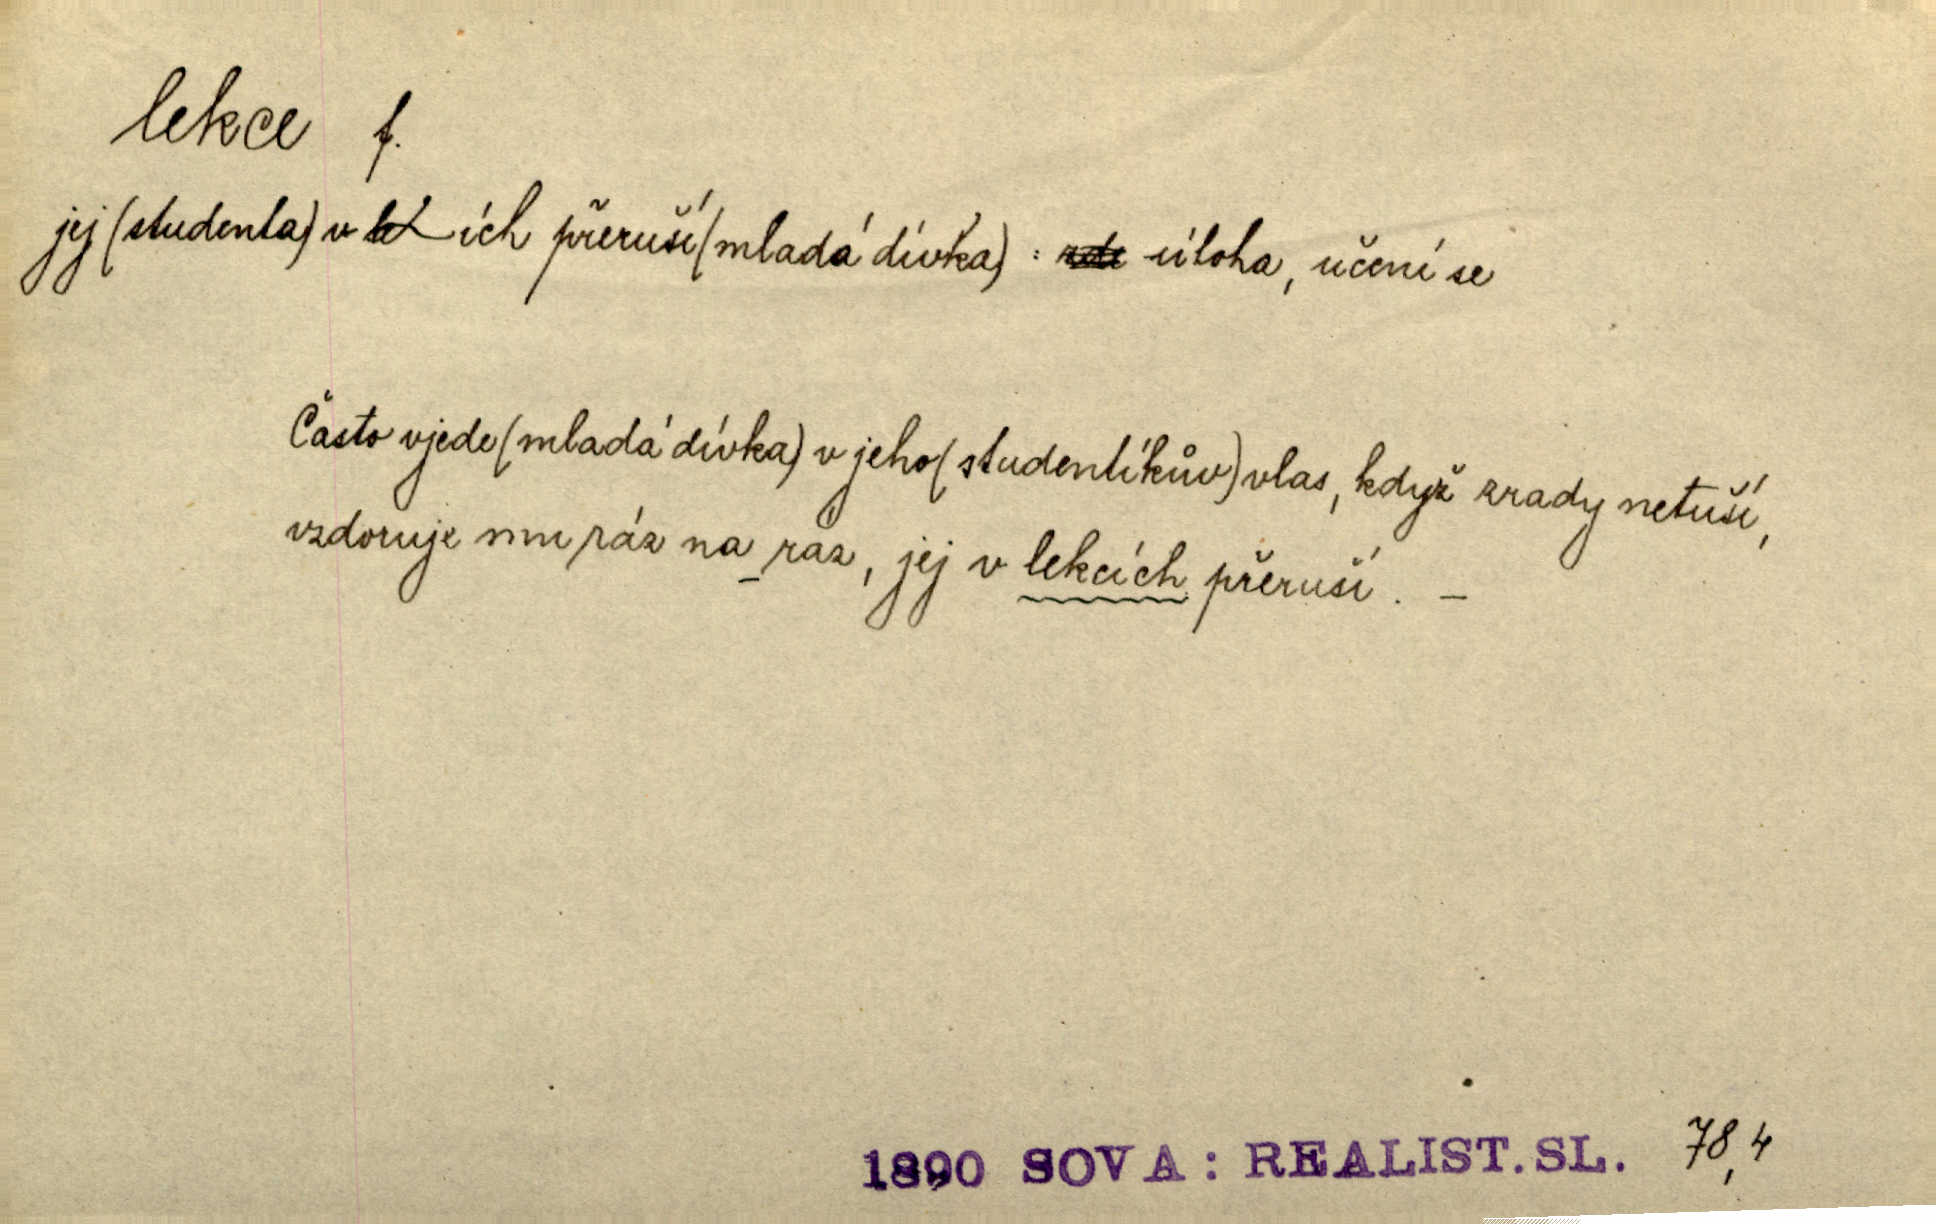 lekce f.
jej (studenta) v ích přeruší (mladá dívka) : úloha, učení se
Často vjede (mladá dívka) v jeho (studentíkův) vlas, když zrady netuší,
vzdoruje mu ráz na ráz, jej v lekcích přeruší. –
1890 SOVA: REALIST. SL. 78,4